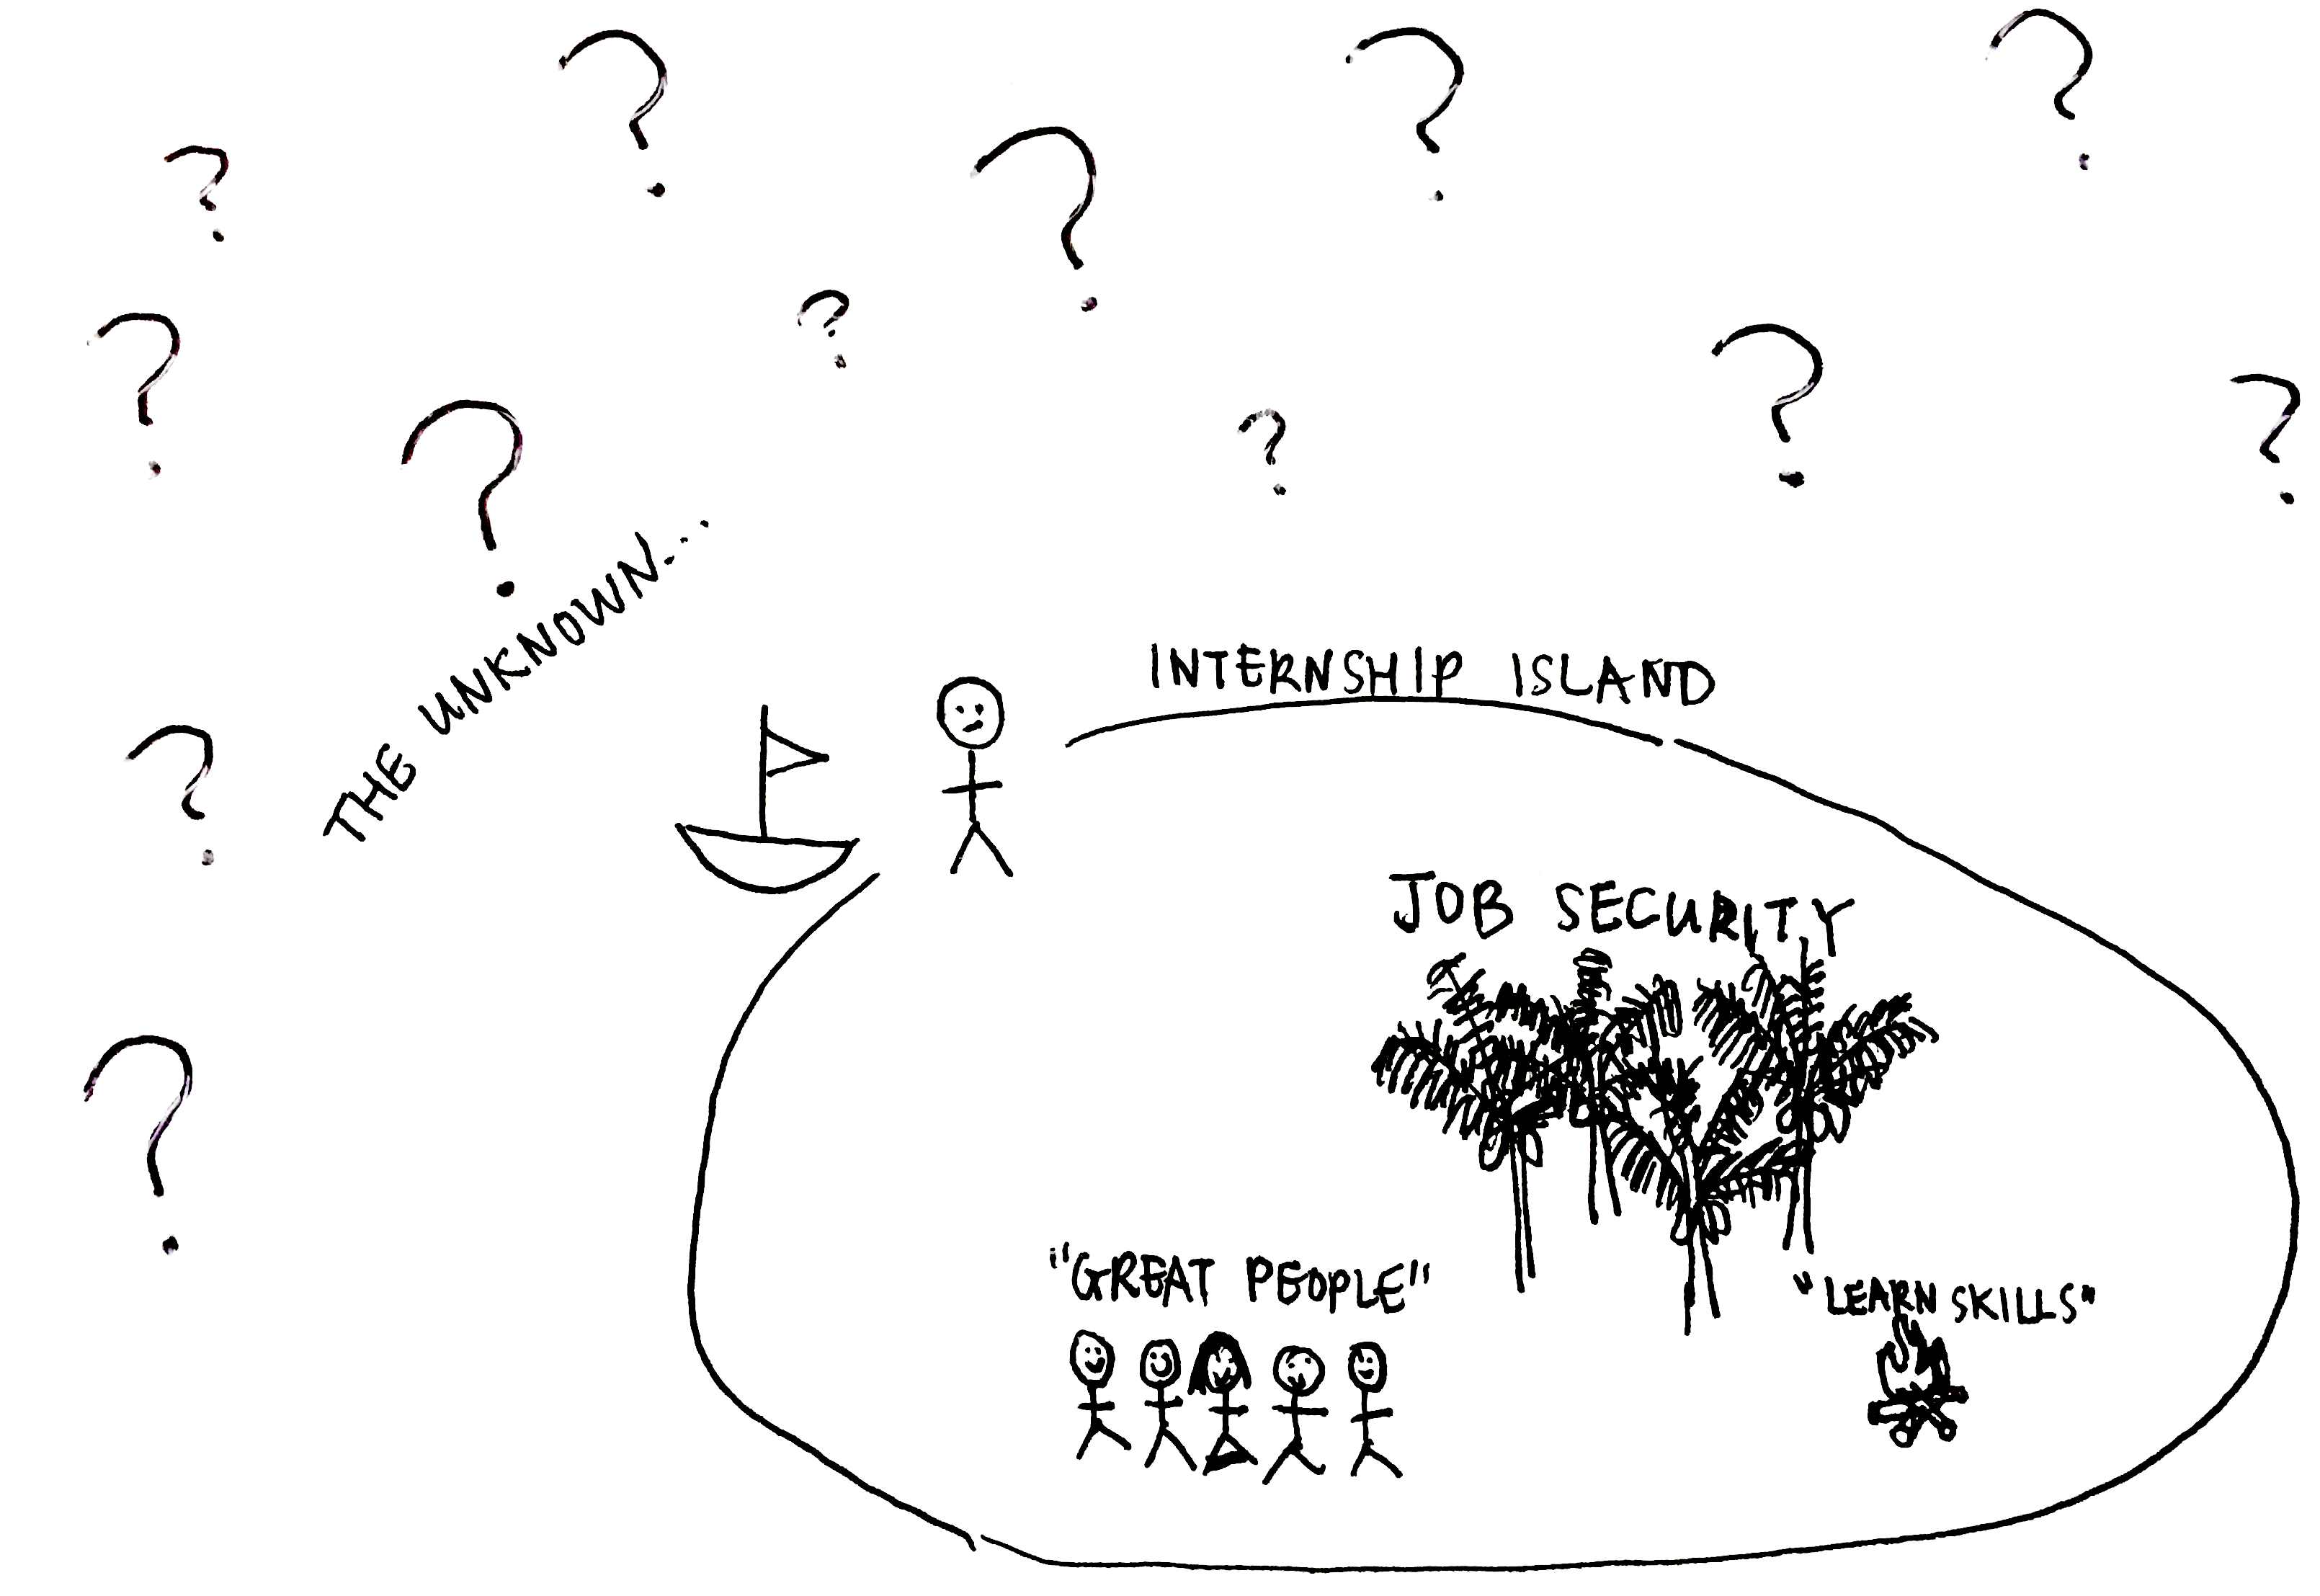 THE UNKNOWN...
INTERNSHIP ISLAND
JOB SECURITY
"GREAT PEOPLE"
"LEARN SKILLS"